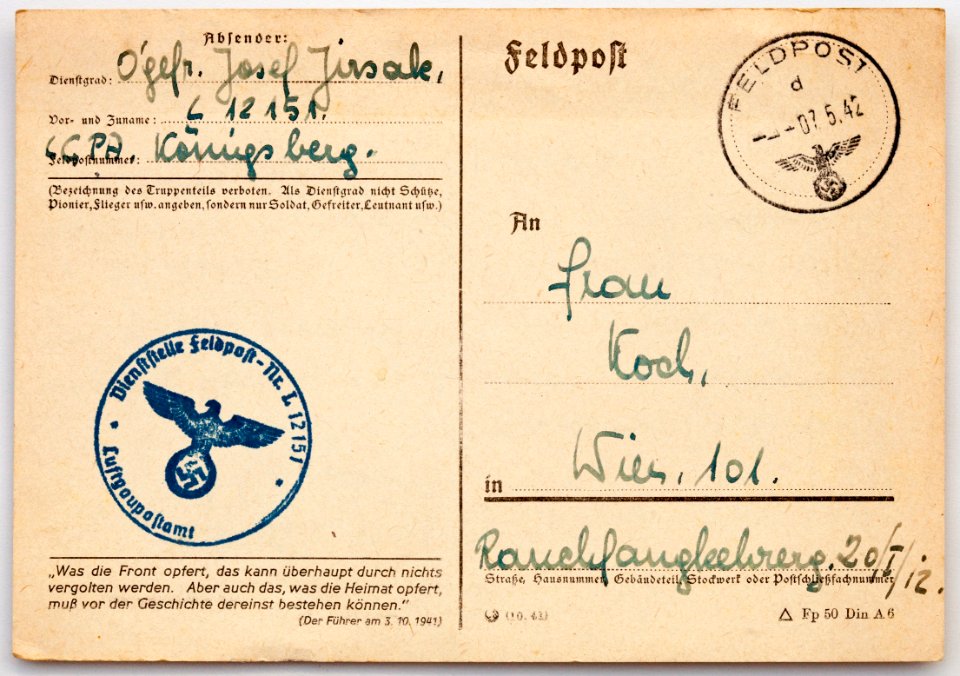 Absender:
Dienstgrad: O'gefr. Josef Jirsak,
Vor- und Zuname: L 12151.
Feldpostnummer: LGPA. Königsberg.
(Bezeichnung des Truppenteils verboten. Als Dienstgrad nicht Schütze,
Pionier, Flieger usw. angeben, sondern nur Soldat, Gefreiter, Leutnant usw.)
Dienststelle Feldpost-Nr. L 12151
Luftgaupostamt
„Was die Front opfert, das kann überhaupt durch nichts
vergolten werden. Aber auch das, was die Heimat opfert,
muß vor der Geschichte dereinst bestehen können.“
(Der Führer am 3. 10. 1941)
Feldpost
FELDPOST
d
-07.5.42
An
Frau
Koch,
in Wien, 101.
Rauchfangkehrerg. 20/I/12.
Straße, Hausnummer, Gebäudeteil, Stockwerk oder Postschließfachnummer
Fp 50 Din A 6